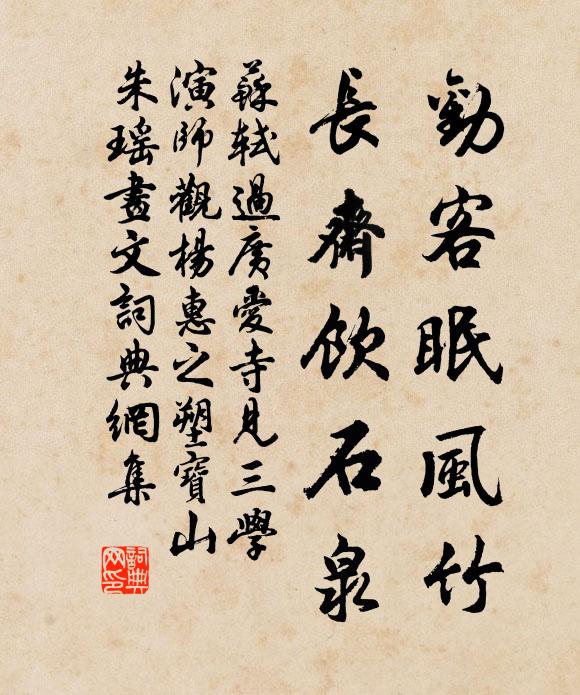 勸客眠風竹
長齋飲石泉
蘇軾過廣愛寺見三學
演師觀楊惠之塑寶山
朱瑤畫文詞典網集
詞典网印